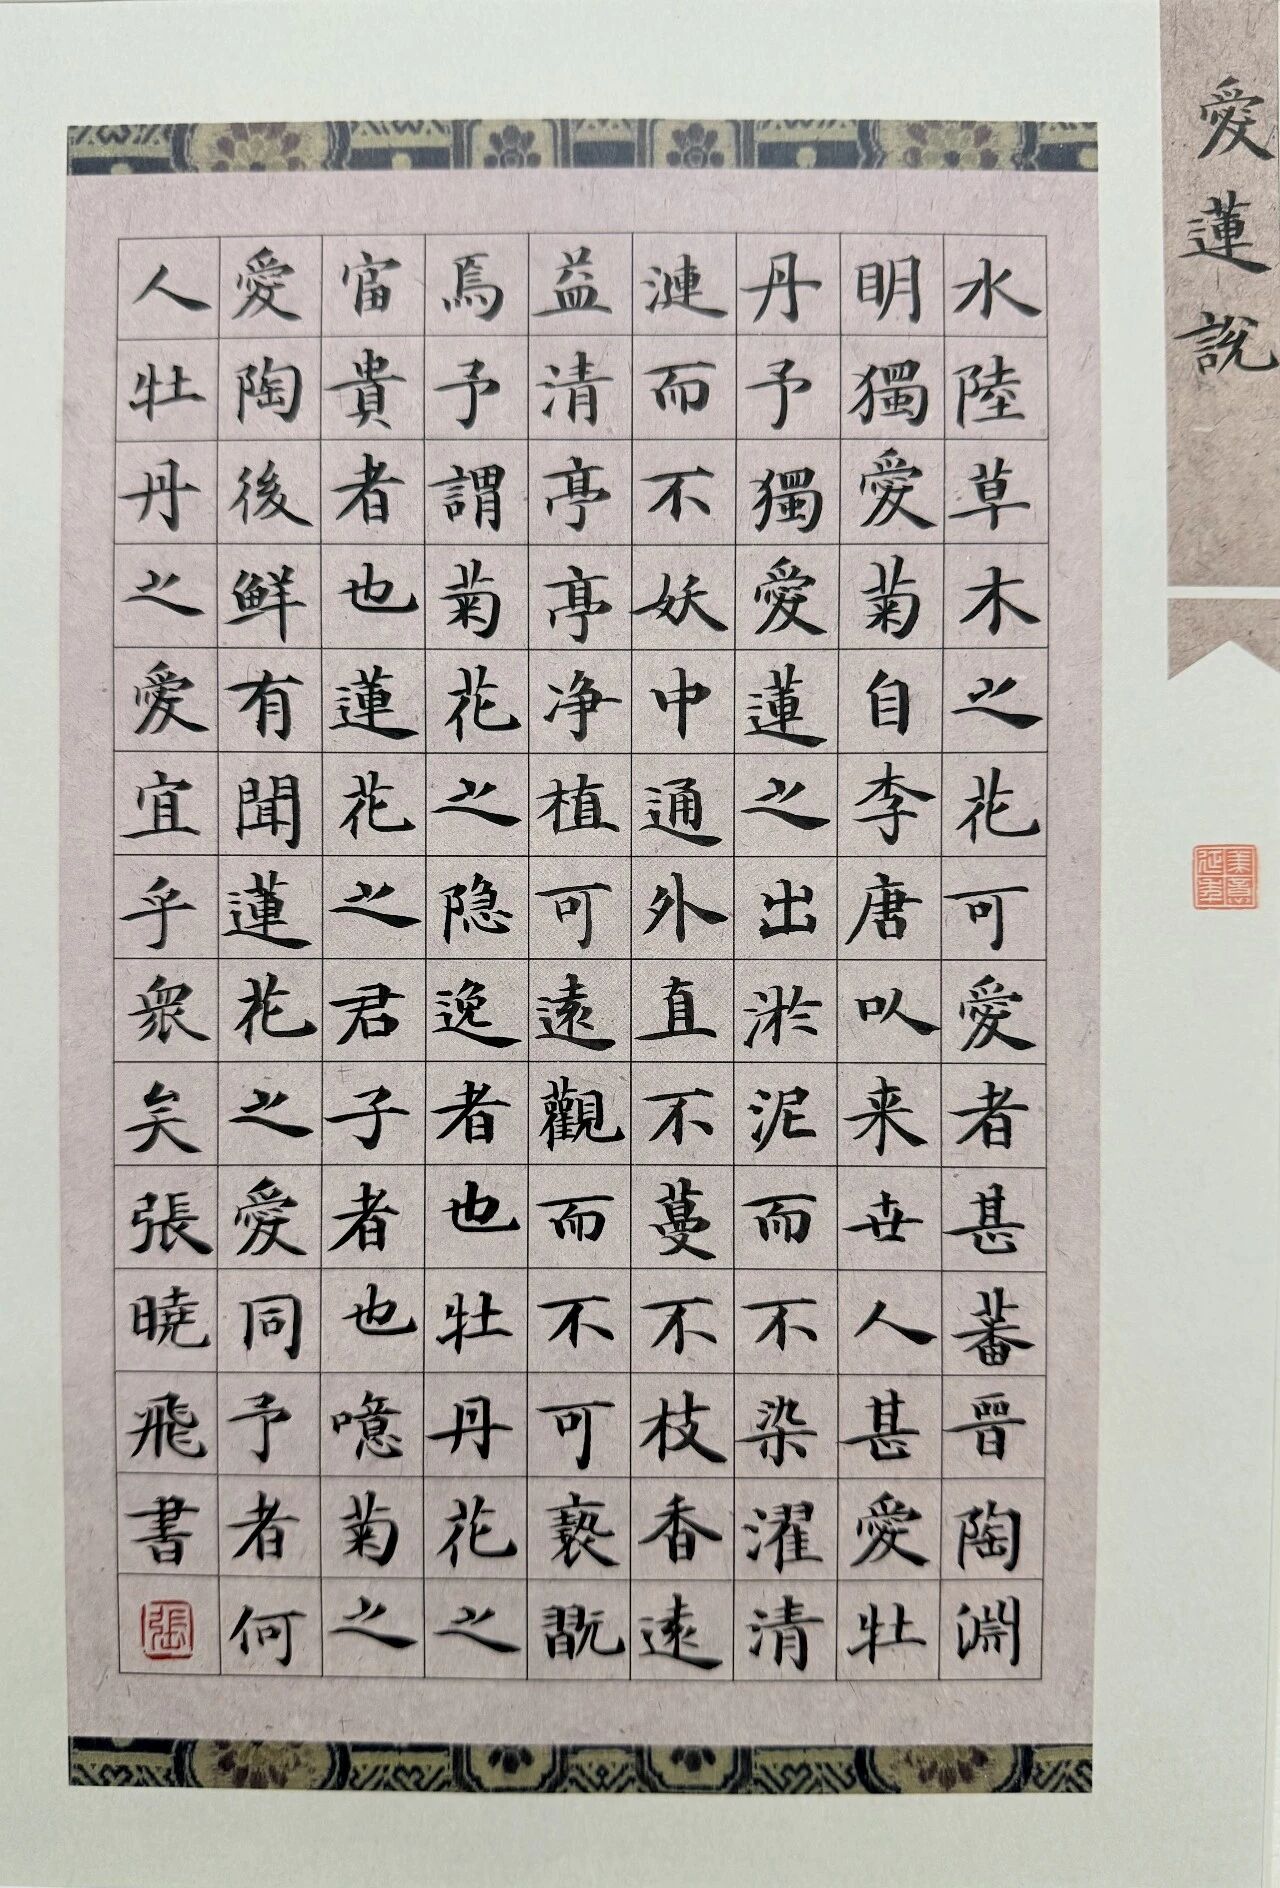 愛蓮說
水陸草木之花可愛者甚蕃晉陶淵
明獨愛菊自李唐以来世人甚愛牡
丹予獨愛蓮之出淤泥而不染濯清
漣而不妖中通外直不蔓不枝香遠
益清亭亭净植可遠觀而不可褻翫
焉予謂菊花之隐逸者也牡丹花之
富貴者也蓮花之君子者也噫菊之
愛陶後鲜有聞蓮花之愛同予者何
人牡丹之愛宜乎衆矣張曉飛書
張